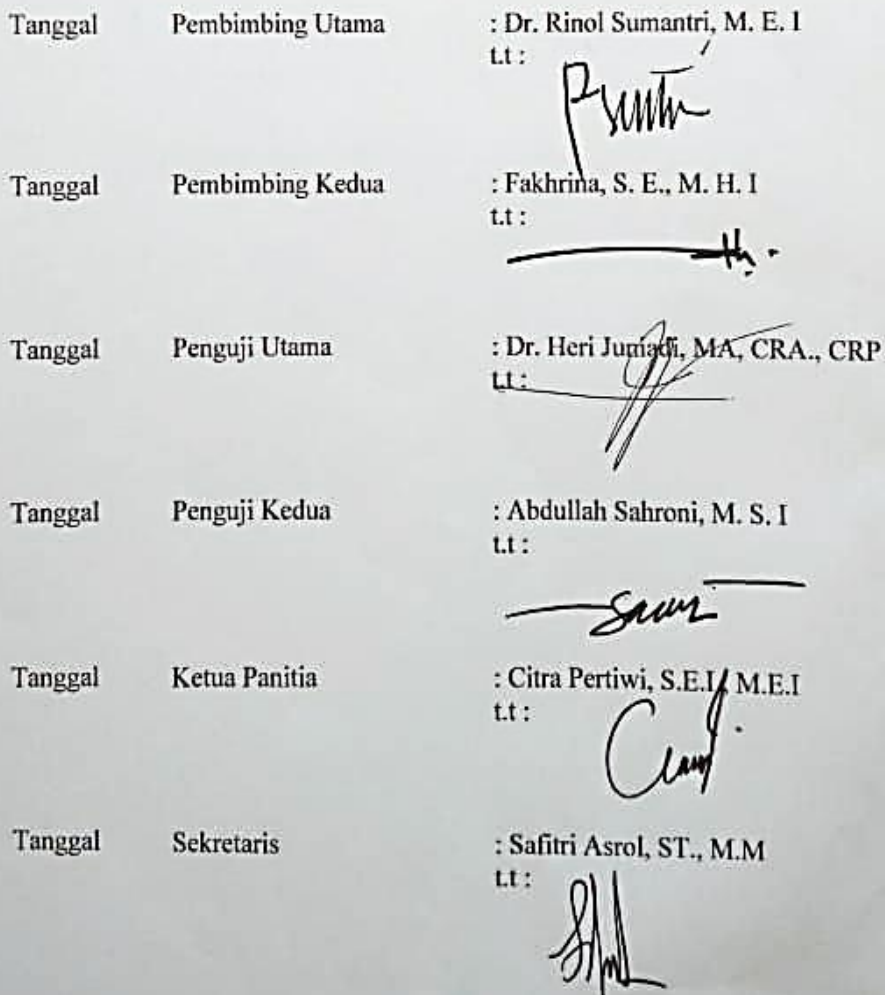 Tanggal Pembimbing Utama : Dr. Rinol Sumantri, M. E. I
t.t :
Tanggal Pembimbing Kedua : Fakhrina, S. E., M. H. I
t.t :
Tanggal Penguji Utama : Dr. Heri Junaidi, MA, CRA., CRP
t.t :
Tanggal Penguji Kedua : Abdullah Sahroni, M. S. I
t.t :
Tanggal Ketua Panitia : Citra Pertiwi, S.E.I, M.E.I
t.t :
Tanggal Sekretaris : Safitri Asrol, ST., M.M
t.t :